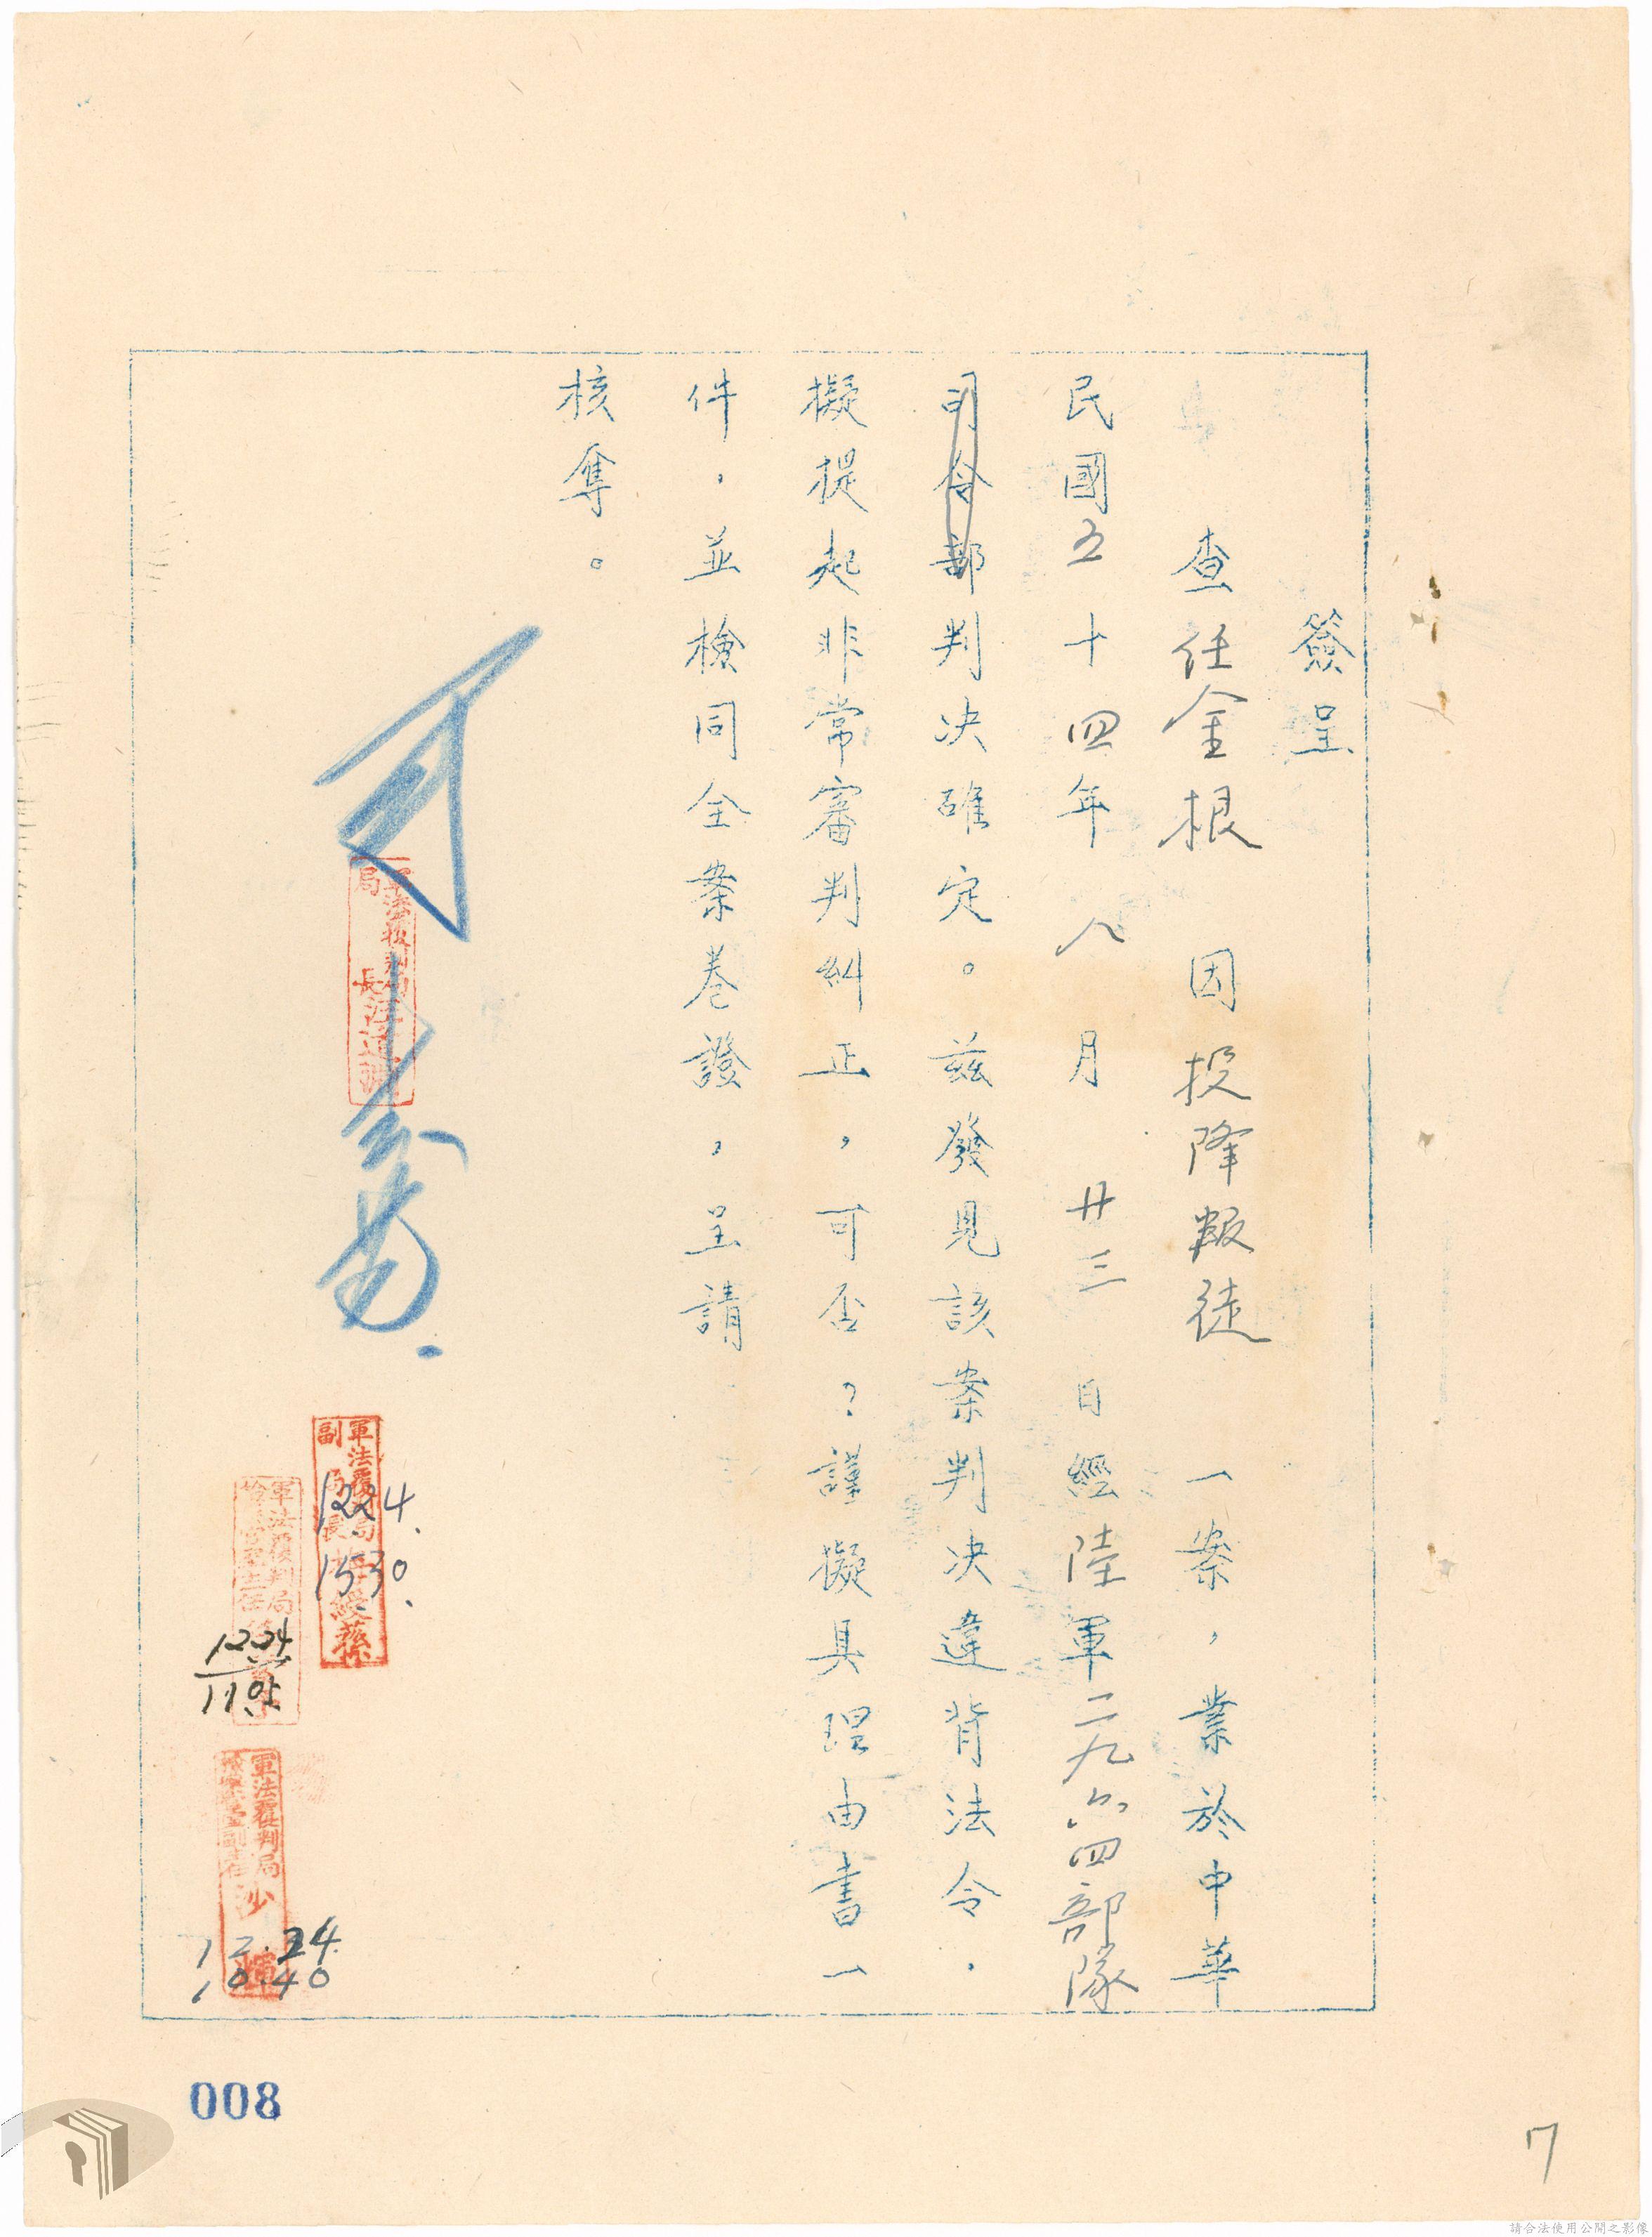 簽呈
查任金根 因投降叛徒 一案，業於中華
民國五十四年八月廿三日經陸軍二九六四部隊
司令部判决確定。茲發見該案判决違背法令．
擬提起非常審判糾正，可否？謹擬具理由書一
件，並檢同全案卷證，呈請
核奪。
可
軍法覆判局
副局長
1224.
1530.
軍法覆判局
12.24
11.05
軍法覆判局
沙
12.24
10.40
008
7
請合法使用公開之影像